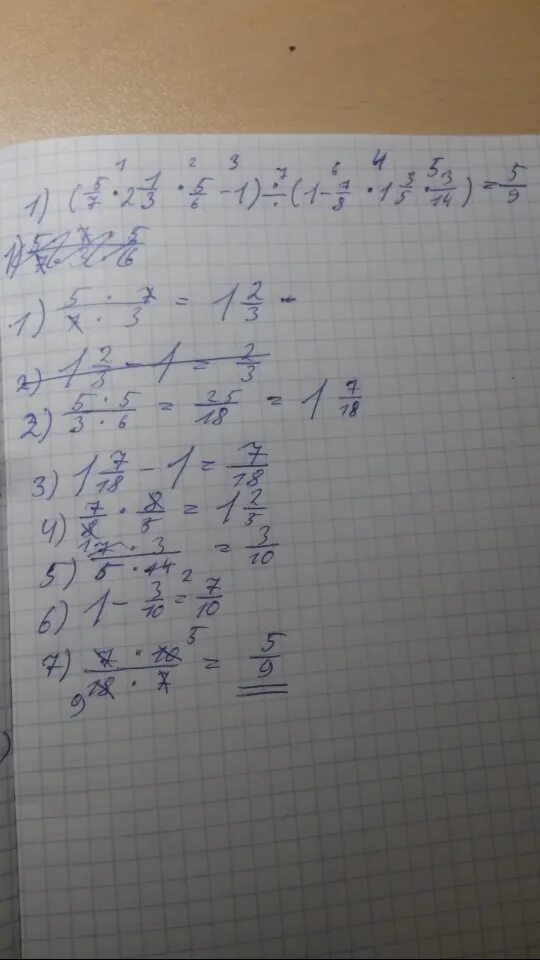 1) (5/7 · 2 1/3 · 5/6 - 1) ÷ (1 - 7/8 · 1 3/5 · 3/14) = 5/9
1) 5 · 7 · 5 / 7 · 3 · 6
1) 5 · 7 / 7 · 3 = 1 2/3
2) 1 2/3 - 1 = 2/3
2) 5 · 5 / 3 · 6 = 25/18 = 1 7/18
3) 1 7/18 - 1 = 7/18
4) 7/8 · 8/5 = 1 2/5
5) 7 · 3 / 5 · 14 = 3/10
6) 1 - 3/10 = 7/10
7) 7 · 10 / 18 · 7 = 5/9